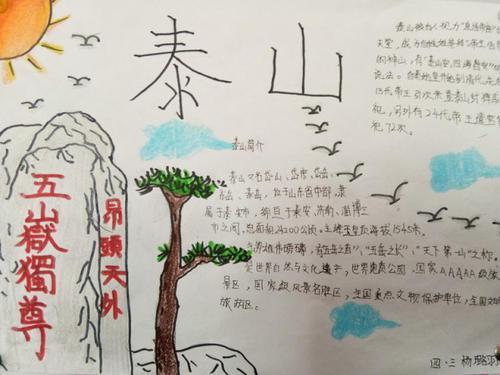 泰山
泰山被古人视为"直通帝座"的
天堂,成为百姓崇拜,帝王告祭
的神山,有"泰山安,四海皆安"的
说法。自秦始皇开始到清代,先后
13代帝王引次亲登泰山封禅或祭
祀,另外有24代帝王遣官祭
祀72次。
泰山简介
泰山又名岱山、岱宗、岱岳、
东岳、泰岳,位于山东省中部,隶
属于泰安市,绵亘于泰安、济南、淄博三
市之间,总面积24200公顷。主峰玉皇顶海拔1545米
气势雄伟磅礴,有"五岳之首"、"五岳之长"、"天下第一山"之称。
世界自然与文化遗产,世界地质公园,国家AAAAA级旅
景区,国家级风景名胜区,全国重点文物保护单位,全国文明
旅游区。
五山嶽獨尊
昂頭天外
四·三 杨